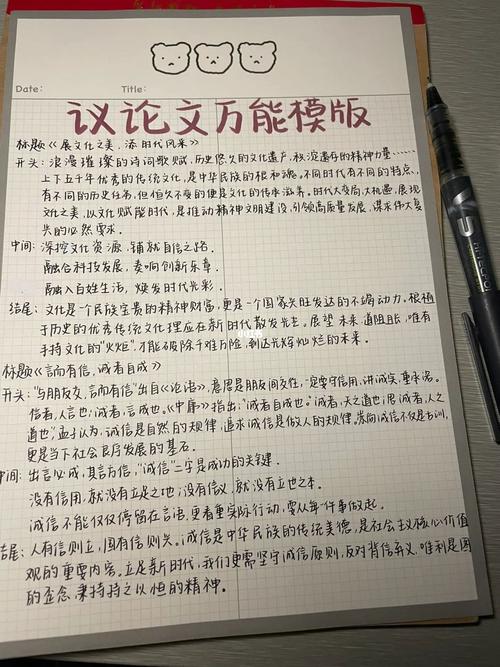 Date:
Title:
议论文万能模版
标题《展文化之美,添时代风采》
开头:浪漫璀璨的诗词歌赋,历史悠久的文化遗产,积淀遗存的精神力量……
上下五千年优秀的传统文化,是中华民族的根和魂。不同时代有不同的特点,
有不同的历史任务,但恒久不变的便是文化的传承滋养。时代大变局,大机遇,展现
文化之美,以文化赋能时代,是推动精神文明建设,引领高质量发展,谋求伟大复
兴的必然要求。
中间:深挖文化资源,铺就自信之路.
融合科技发展,奏响创新乐章.
融入百姓生活,焕发时代光彩.
结尾:文化是一个民族宝贵的精神财富,更是一个国家兴旺发达的不竭动力。根植
于历史的优秀传统文化理应在新时代散发光芒。展望未来,道阻且长,唯有
手持文化的"火炬",才能破除千难万险,到达光辉灿烂的未来。
标题《言而有信,诚者自成》
开头:"与朋友交,言而有信"出自《论语》,意思是朋友间交往,一定要守信用,讲诚实,重承诺。
信者,人言也;诚者,言成也。《中庸》指出:"诚者自成也。"诚者,天之道也;思诚者,人之
道也",孟子认为,诚信是自然的规律,追求诚信是做人的规律,
更是当下社会良序发展的基石。
中间:出言必成,其言为信,"诚信"二字是成功的关键.
没有信用,就没有立足之地;没有信义,就没有立世之本.
诚信不能仅仅停留在言语,更看重实际行动,要从每一件事做起.
结尾:人有信则立,国有信则兴。诚信是中华民族的传统美德,是社会主义核心价值
观的重要内容。立足新时代,我们更需坚守诚信原则,反对背信弃义、唯利是图
的歪念,秉持持之以恒的精神。